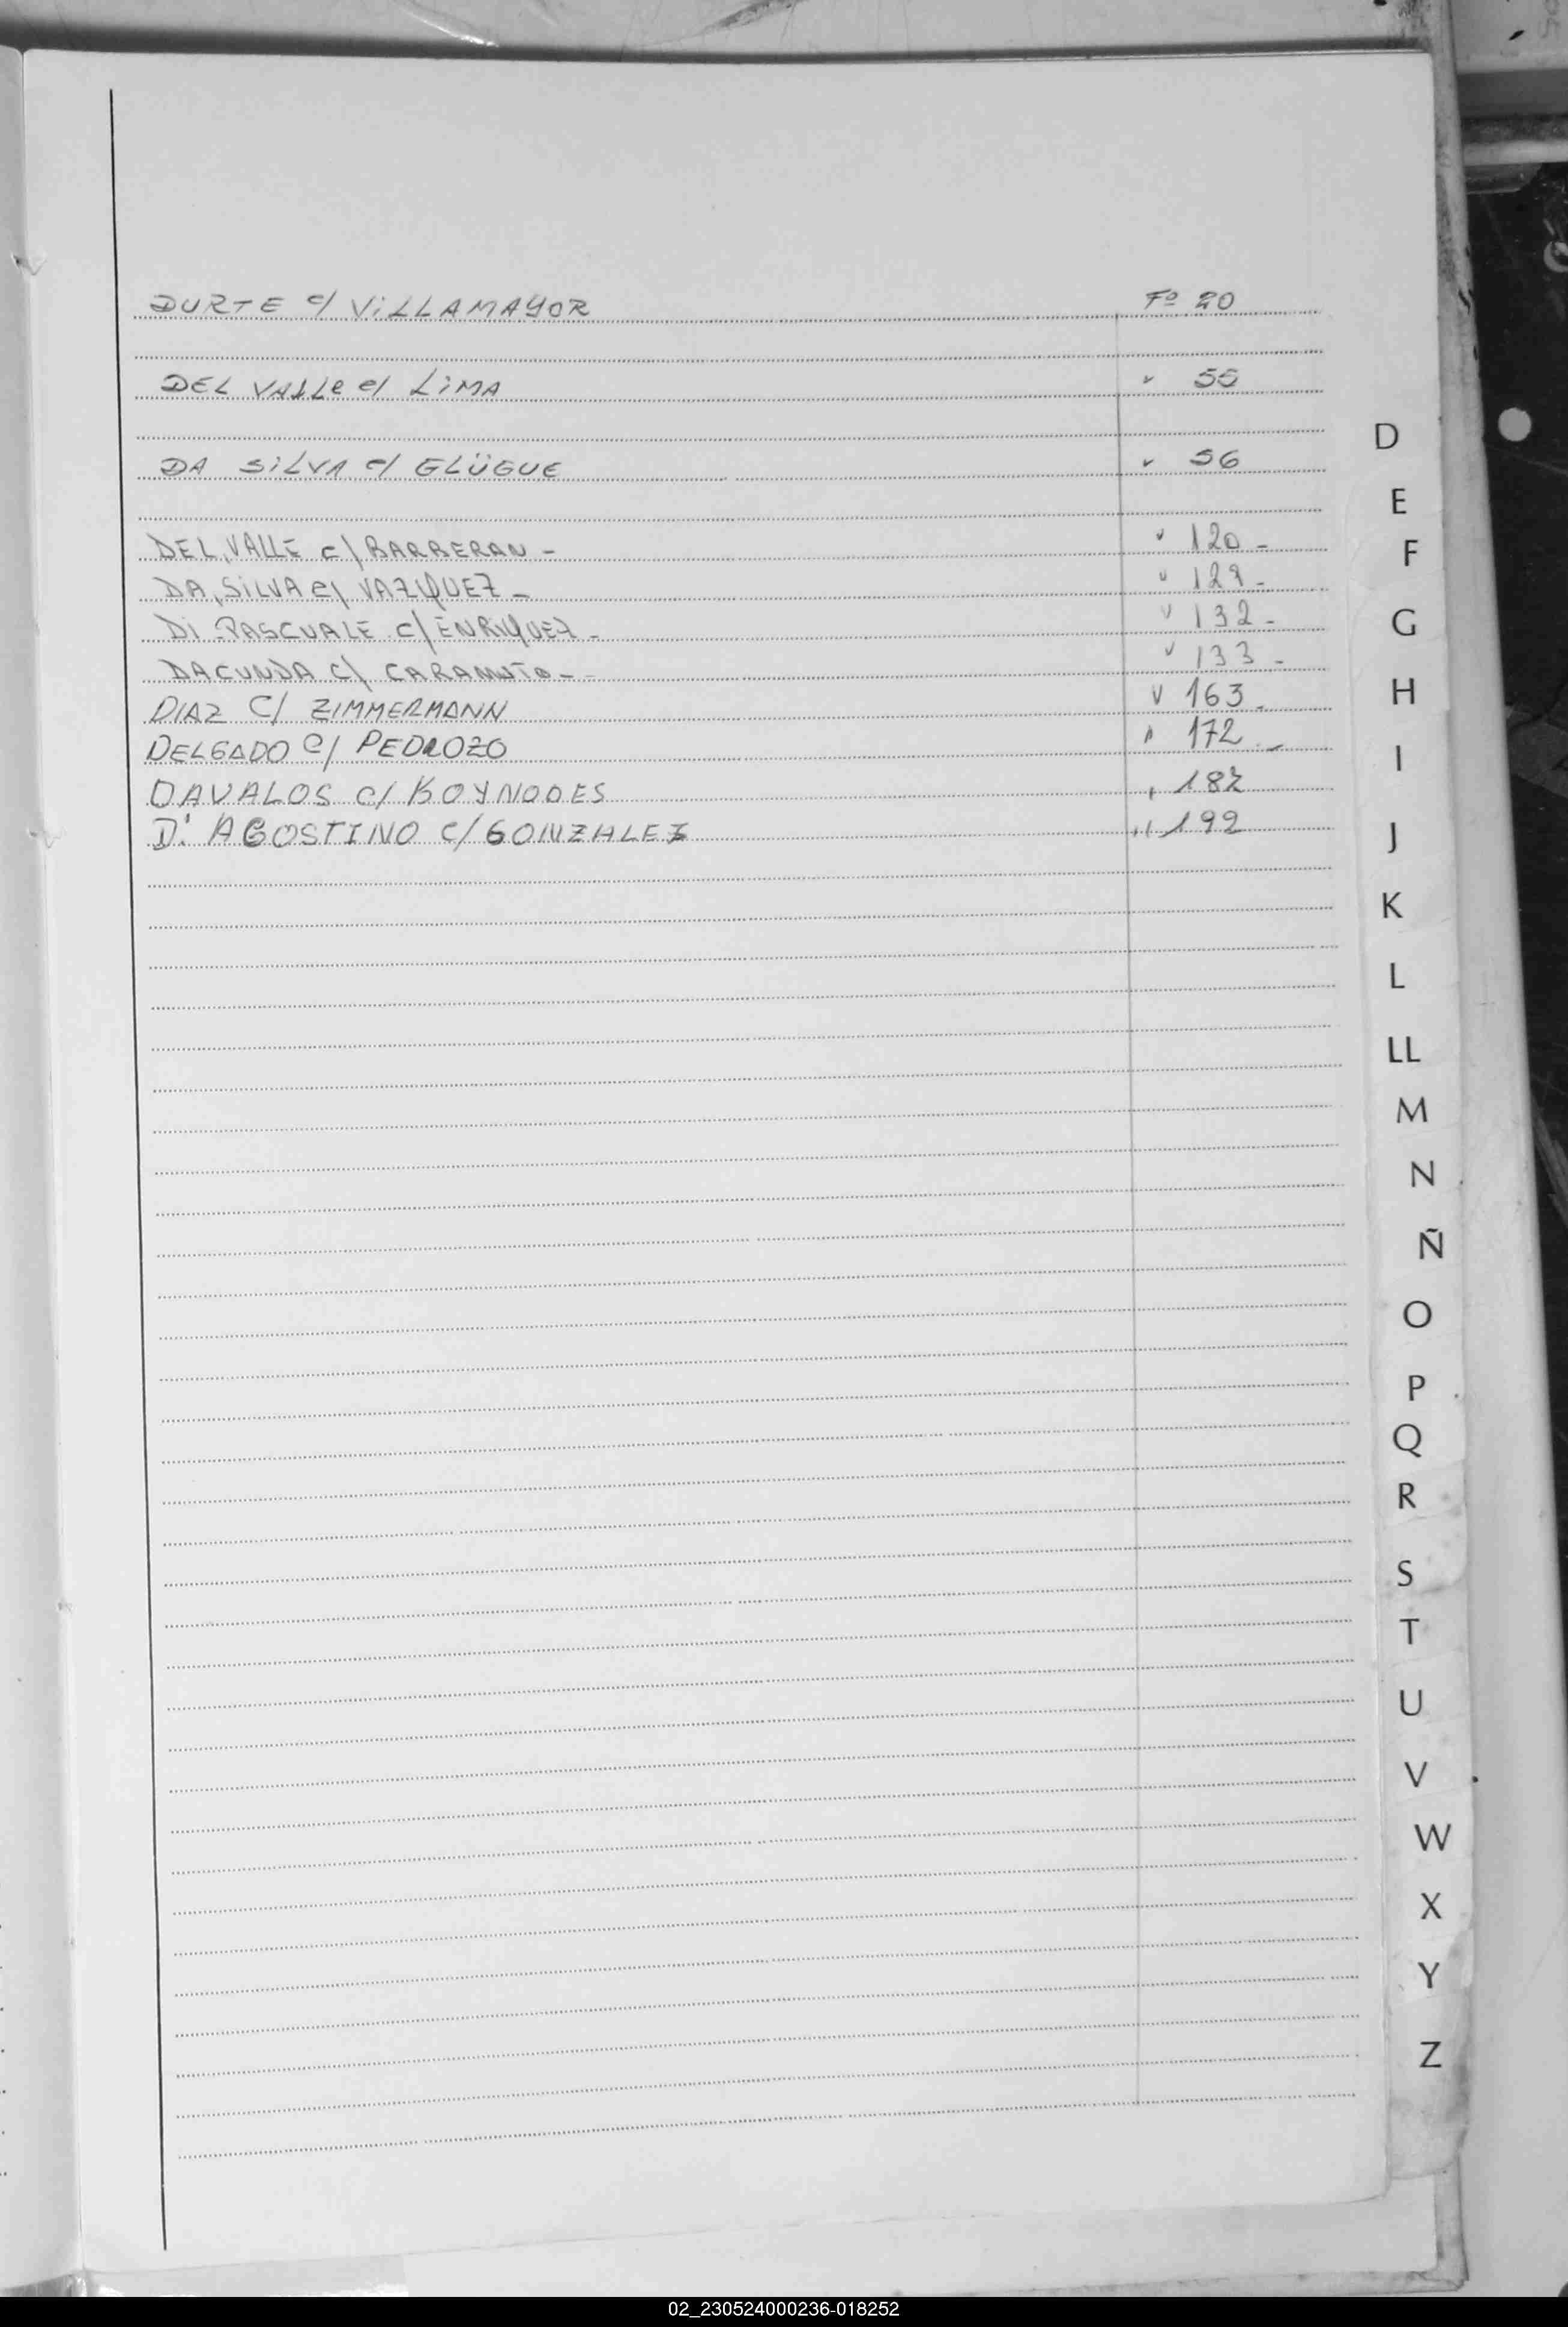 DURTE c/ ViLLAMAYOR Fº 20
DEL VALLe c/ LiMA " 55
DA SiLVA c/ GLÜGUE " 56
DEL VALLE c/ BARBERAN - " 120 -
DA SiLVA c/ VAZQUEZ - " 129 -
Di PASCUALE c/ ENRiQUEZ - " 132 -
DACUNDA c/ - " 133 -
DIAZ C/ ZIMMERMANN " 163 -
DELGADO C/ PEDROZO " 172 -
DAVALOS c/ " 182
D' AGOSTINO c/ GONZALEZ " 192
D
E
F
G
H
I
J
K
L
LL
M
N
Ñ
O
P
Q
R
S
T
U
V
W
X
Y
Z
02_230524000236-018252